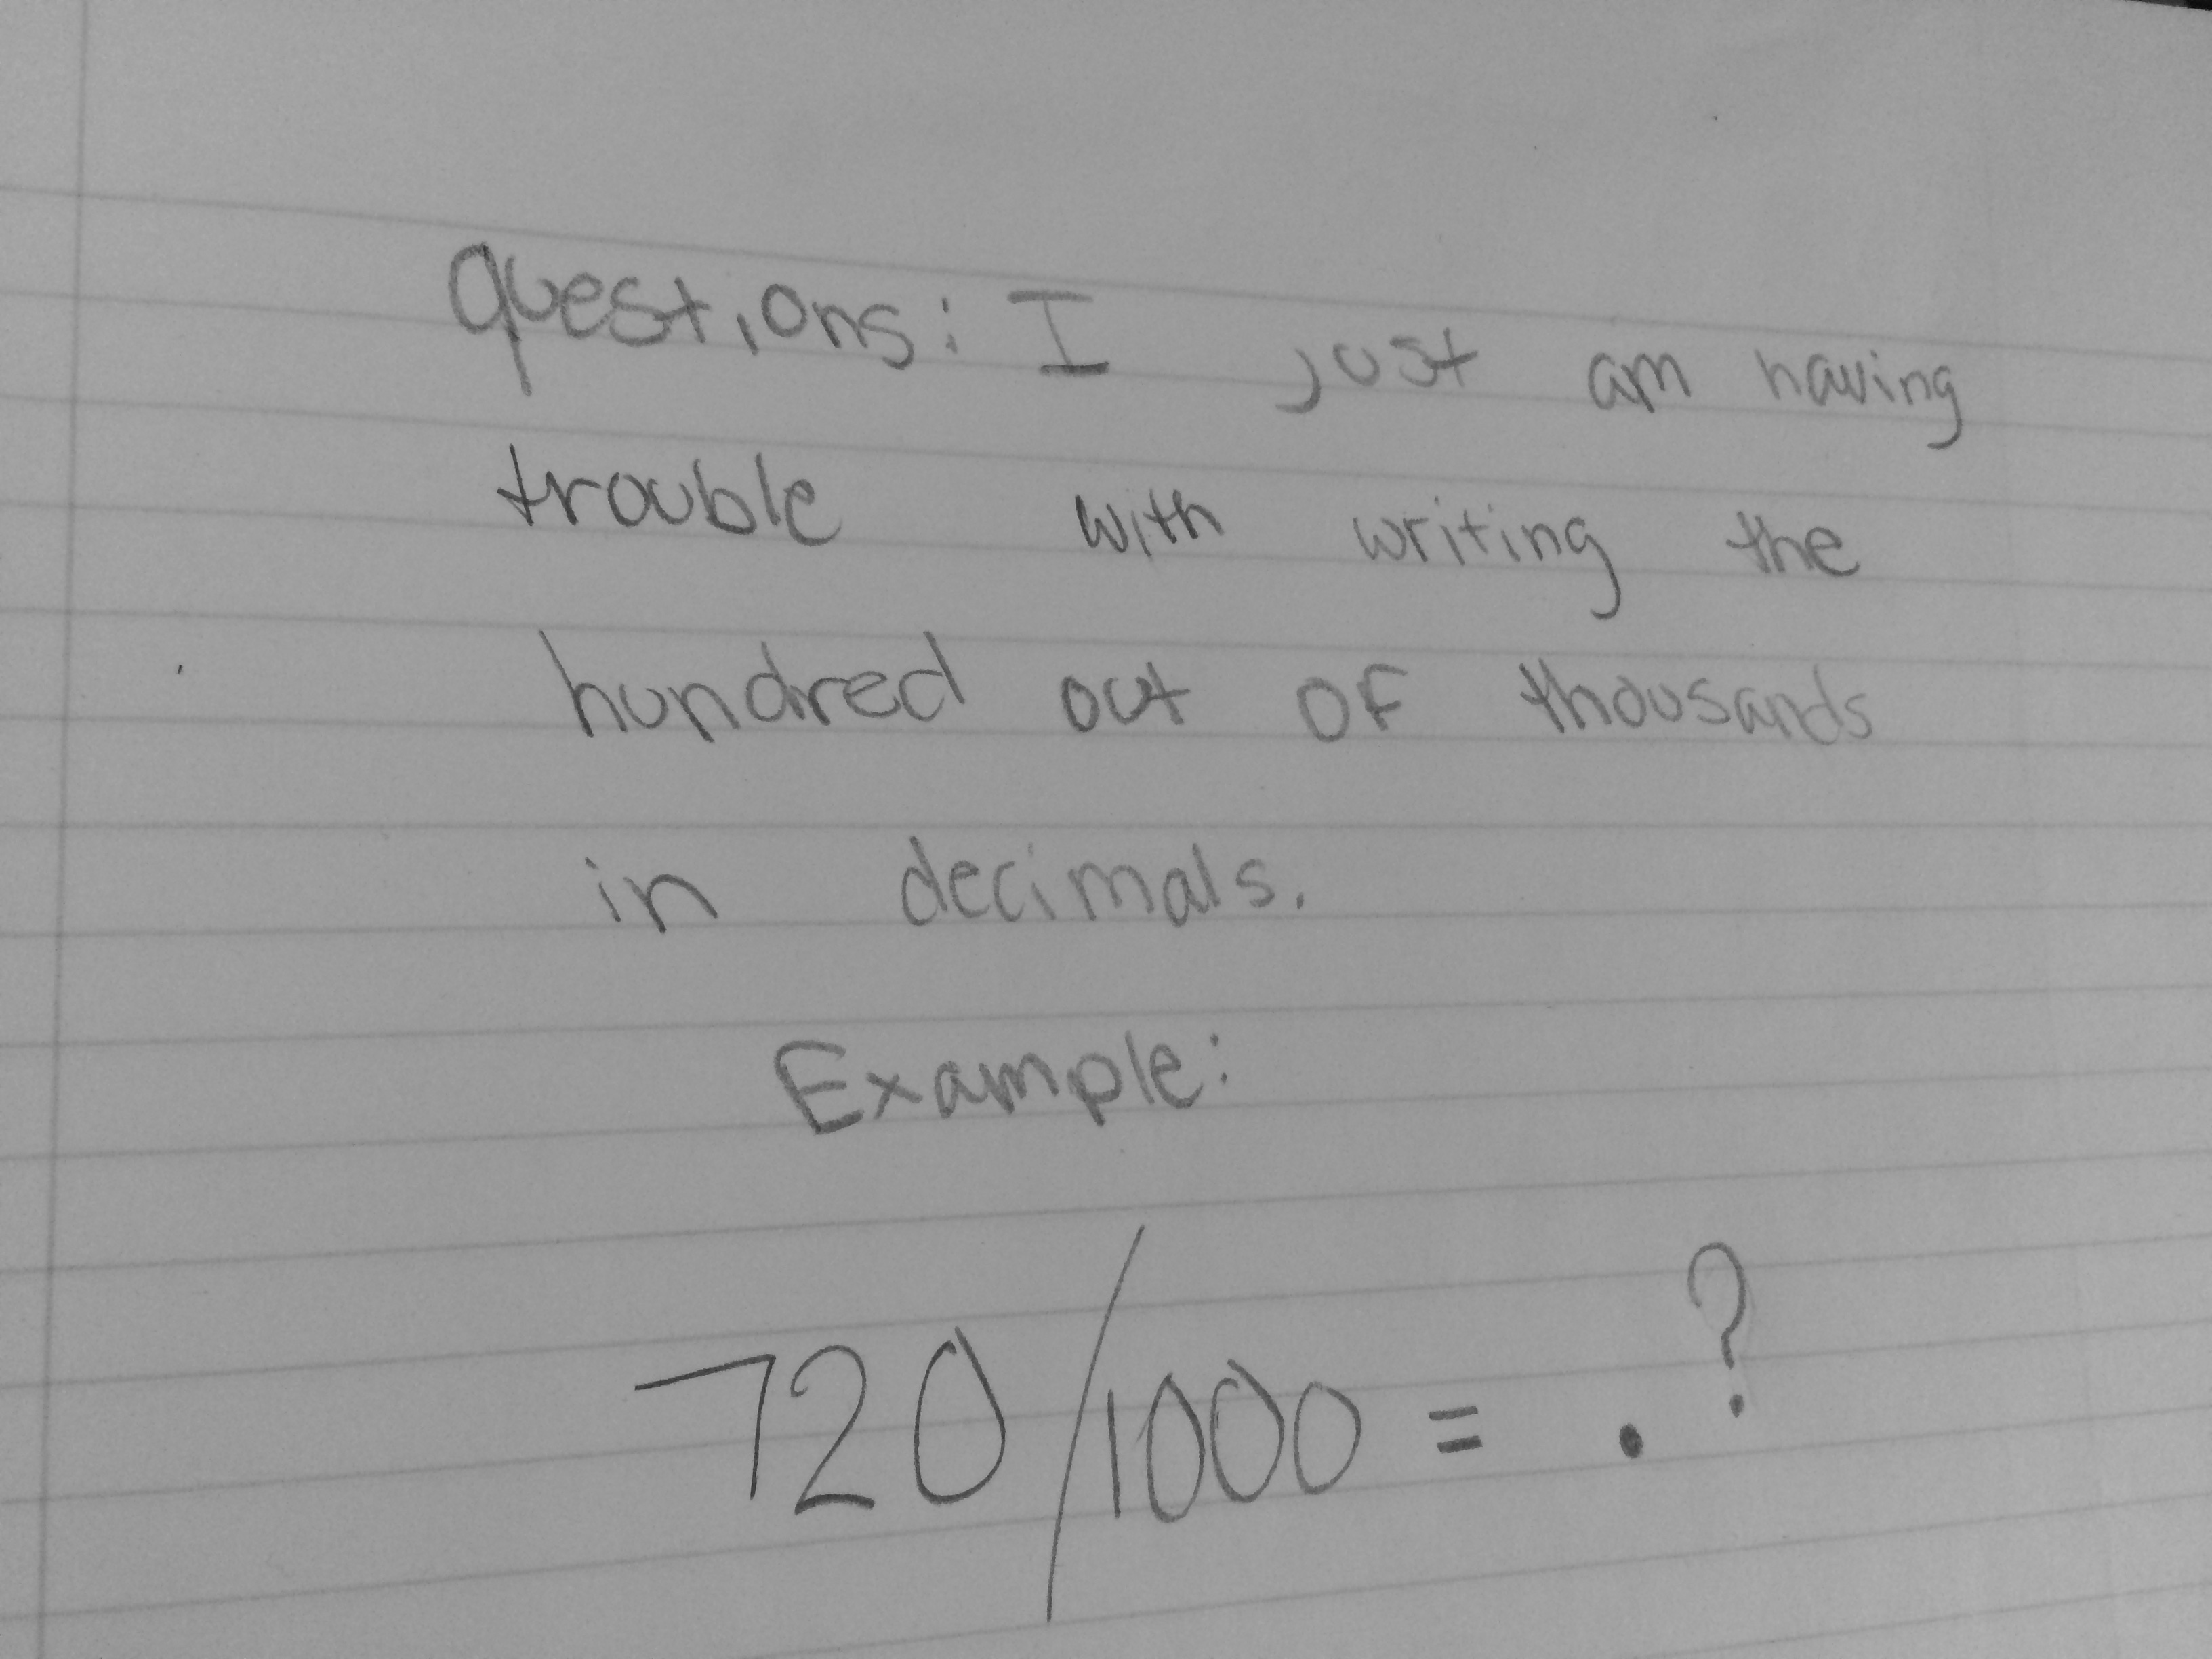 questions: I just am having
trouble with writing the
hundred out of thousands
in decimals.
Example:
720/1000 = .?